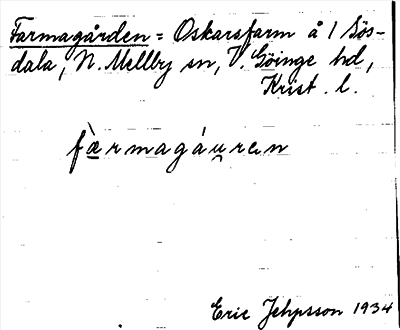 Farmagården = Oskarsfarm å 1 Sös-
dala, N. Mellby sn, V. Göinge hd,
Krist. l.
fæ̀rmagáu̯ræn
Eric Jehpsson 1934